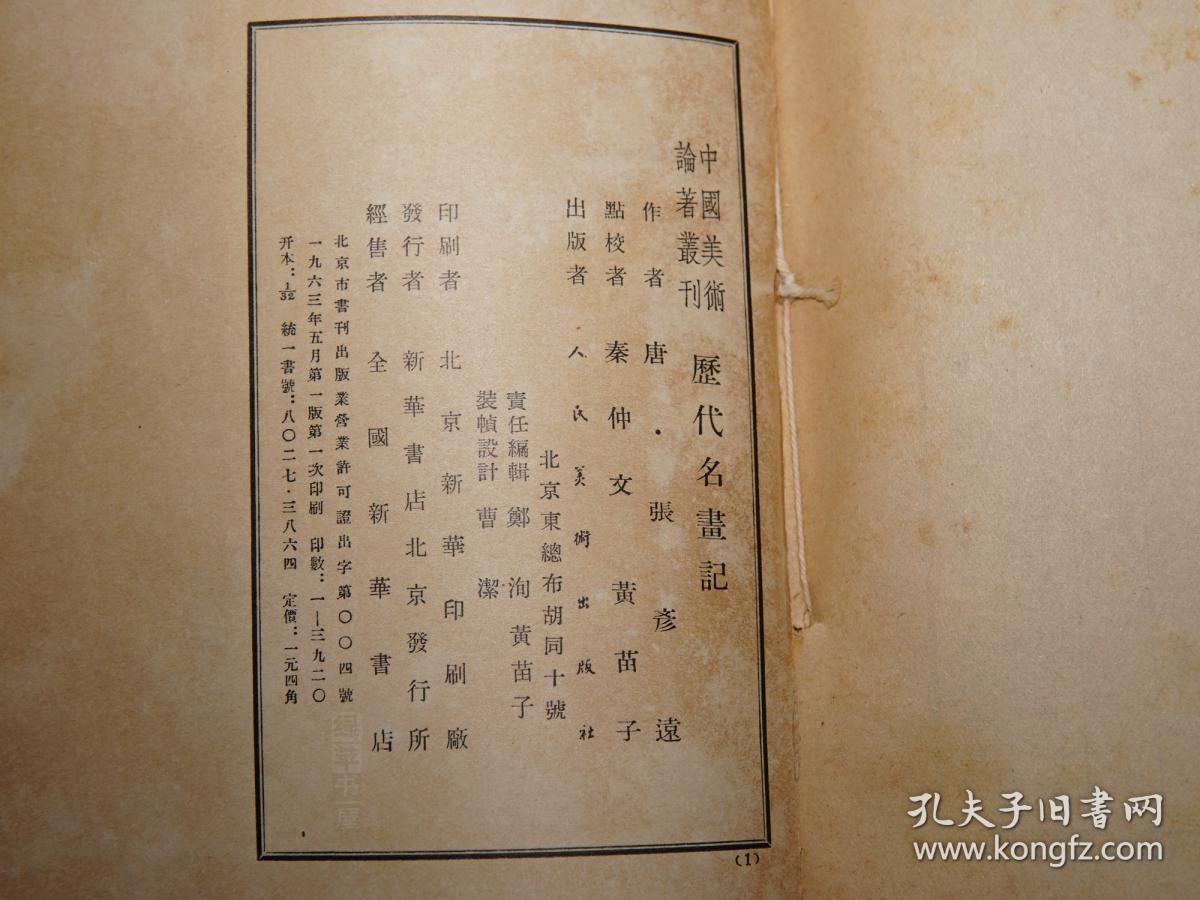 中國美術
論著叢刊
歷代名畫記
作者 唐·張彥遠
點校者 秦仲文 黃苗子
出版者 人民美術出版社
北京東總布胡同十號
責任編輯 鄭洵 黃苗子
裝幀設計 曹潔
印刷者 北京新華印刷廠
發行者 新華書店北京發行所
經售者 全國新華書店
北京市書刊出版業營業許可證出字第〇〇四號
一九六三年五月第一版第一次印刷 印數：一—三九二〇
开本：1/32 統一書號：八〇二七·三八六四 定價：一元四角
(1)
孔夫子旧书网
www.kongfz.com